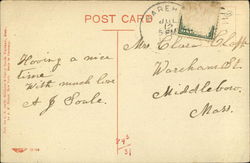 POST CARD
WAREHAM
JUL
12
5 PM
Having a nice
time
With much love
A J Soule.
Mrs. Clara Clapp
Wareham St.
Middleboro,
Mass.